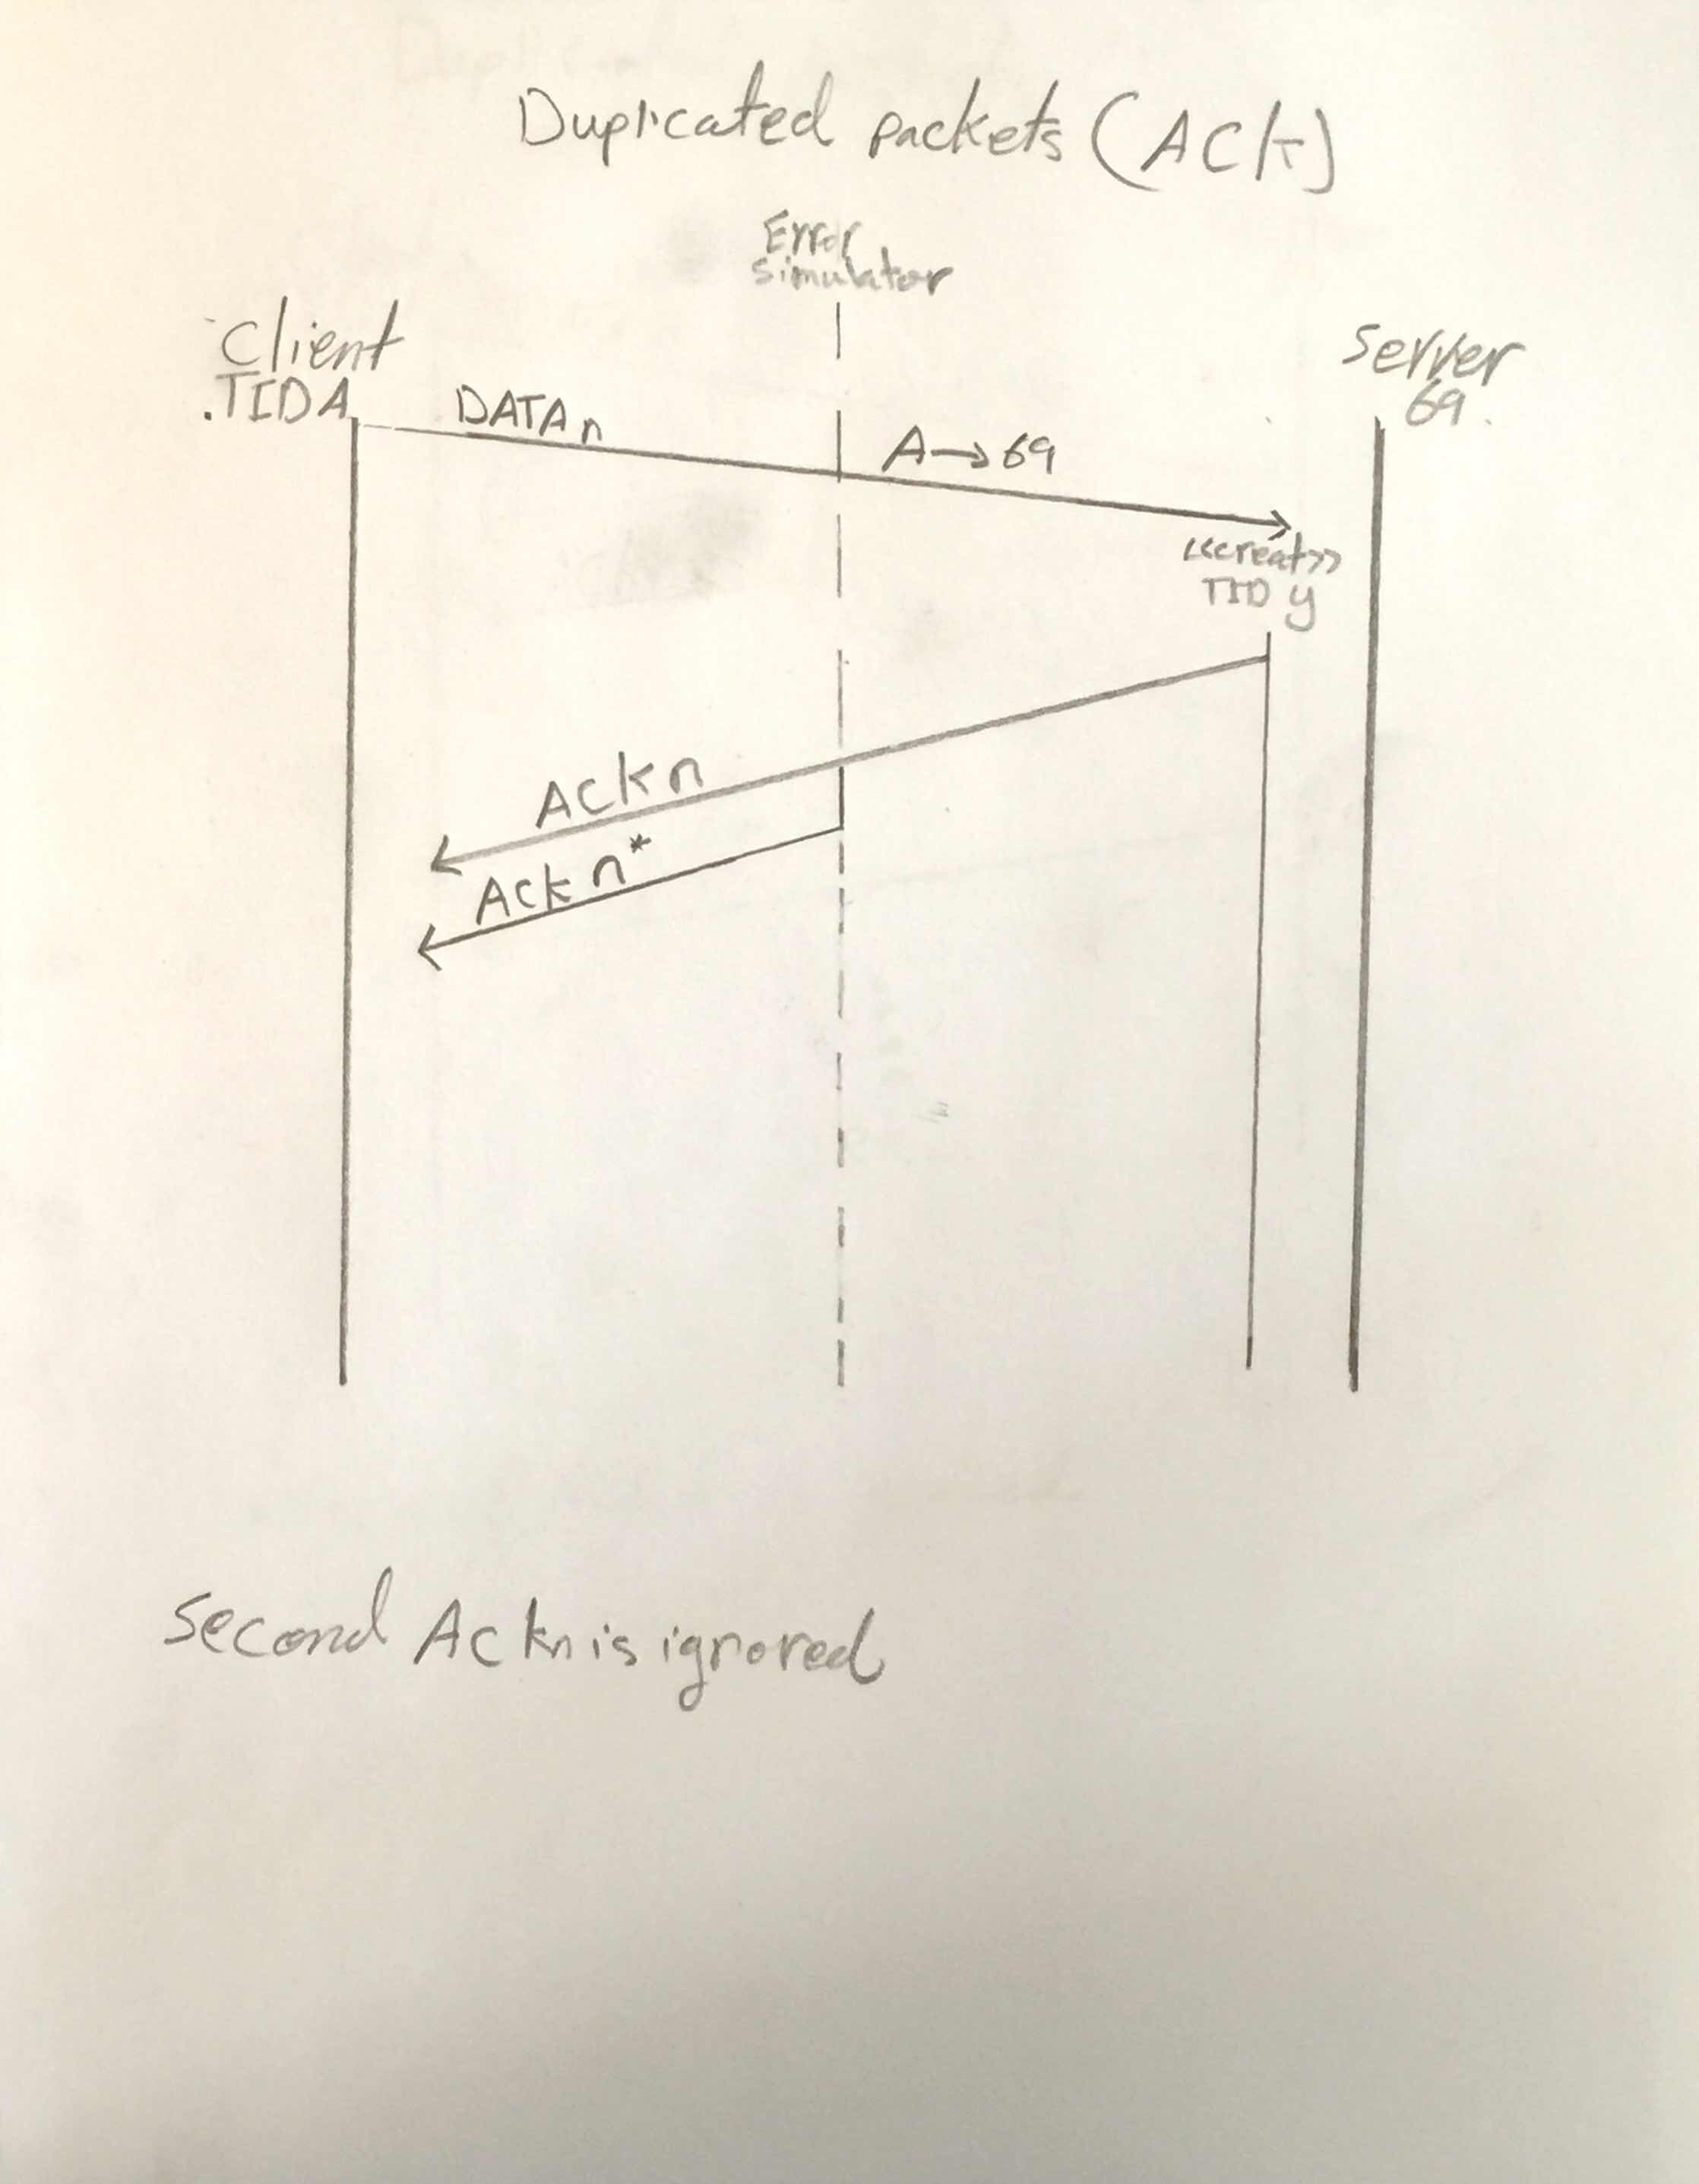 Duplicated packets (ACK)
Error
simulator
Client
TID A
Server
69
DATA n
A→69
<<creat>>
TID y
ACK n
ACK n*
Second Ack n is ignored